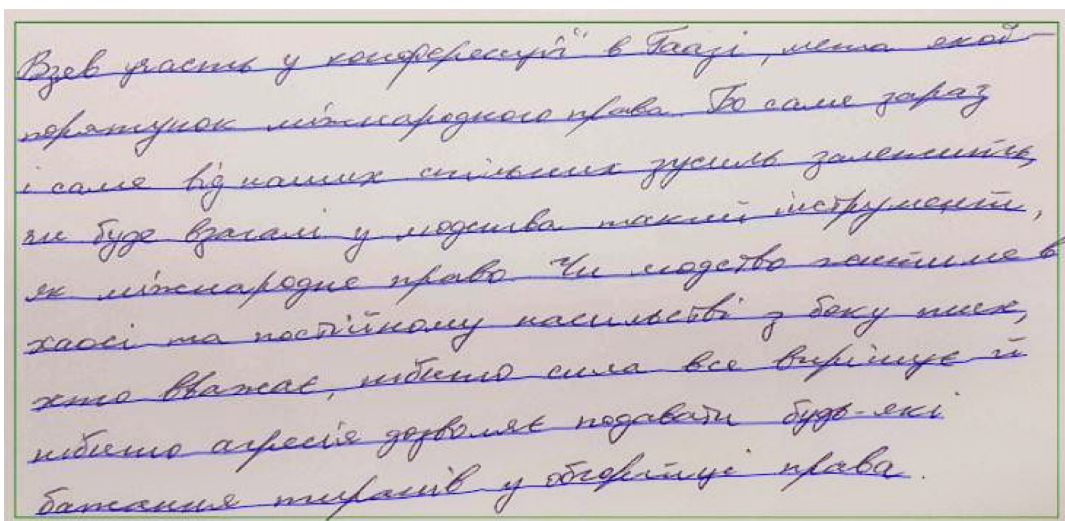 Взяв участь у конференції в Гаазі, мета якої –
порятунок міжнародного права. Бо саме зараз
і саме від наших спільних зусиль залежить,
чи буде взагалі у людства такий інструмент,
як міжнародне право. Чи людство житиме в
хаосі та постійному насильстві з боку тих,
хто вважає, нібито сила все вирішує й
нібито агресія дозволяє подавати будь-які
бажання тиранів у обгортці права.